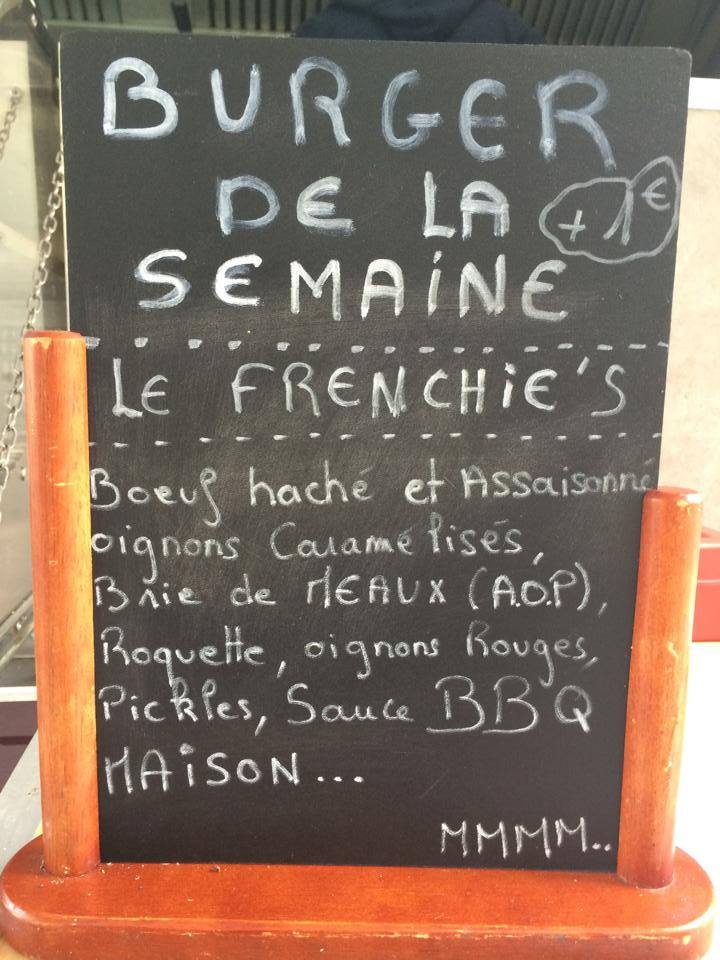 BURGER
DE LA
+1€
SEMAiNE
LE FRENCHiE'S
Boeuf haché et Assaisonné
oignons Caramélisés,
Brie de MEAUX (A.O.P),
Roquette, oignons Rouges,
Pickles, Sauce BBQ
MAiSON...
MMMM..